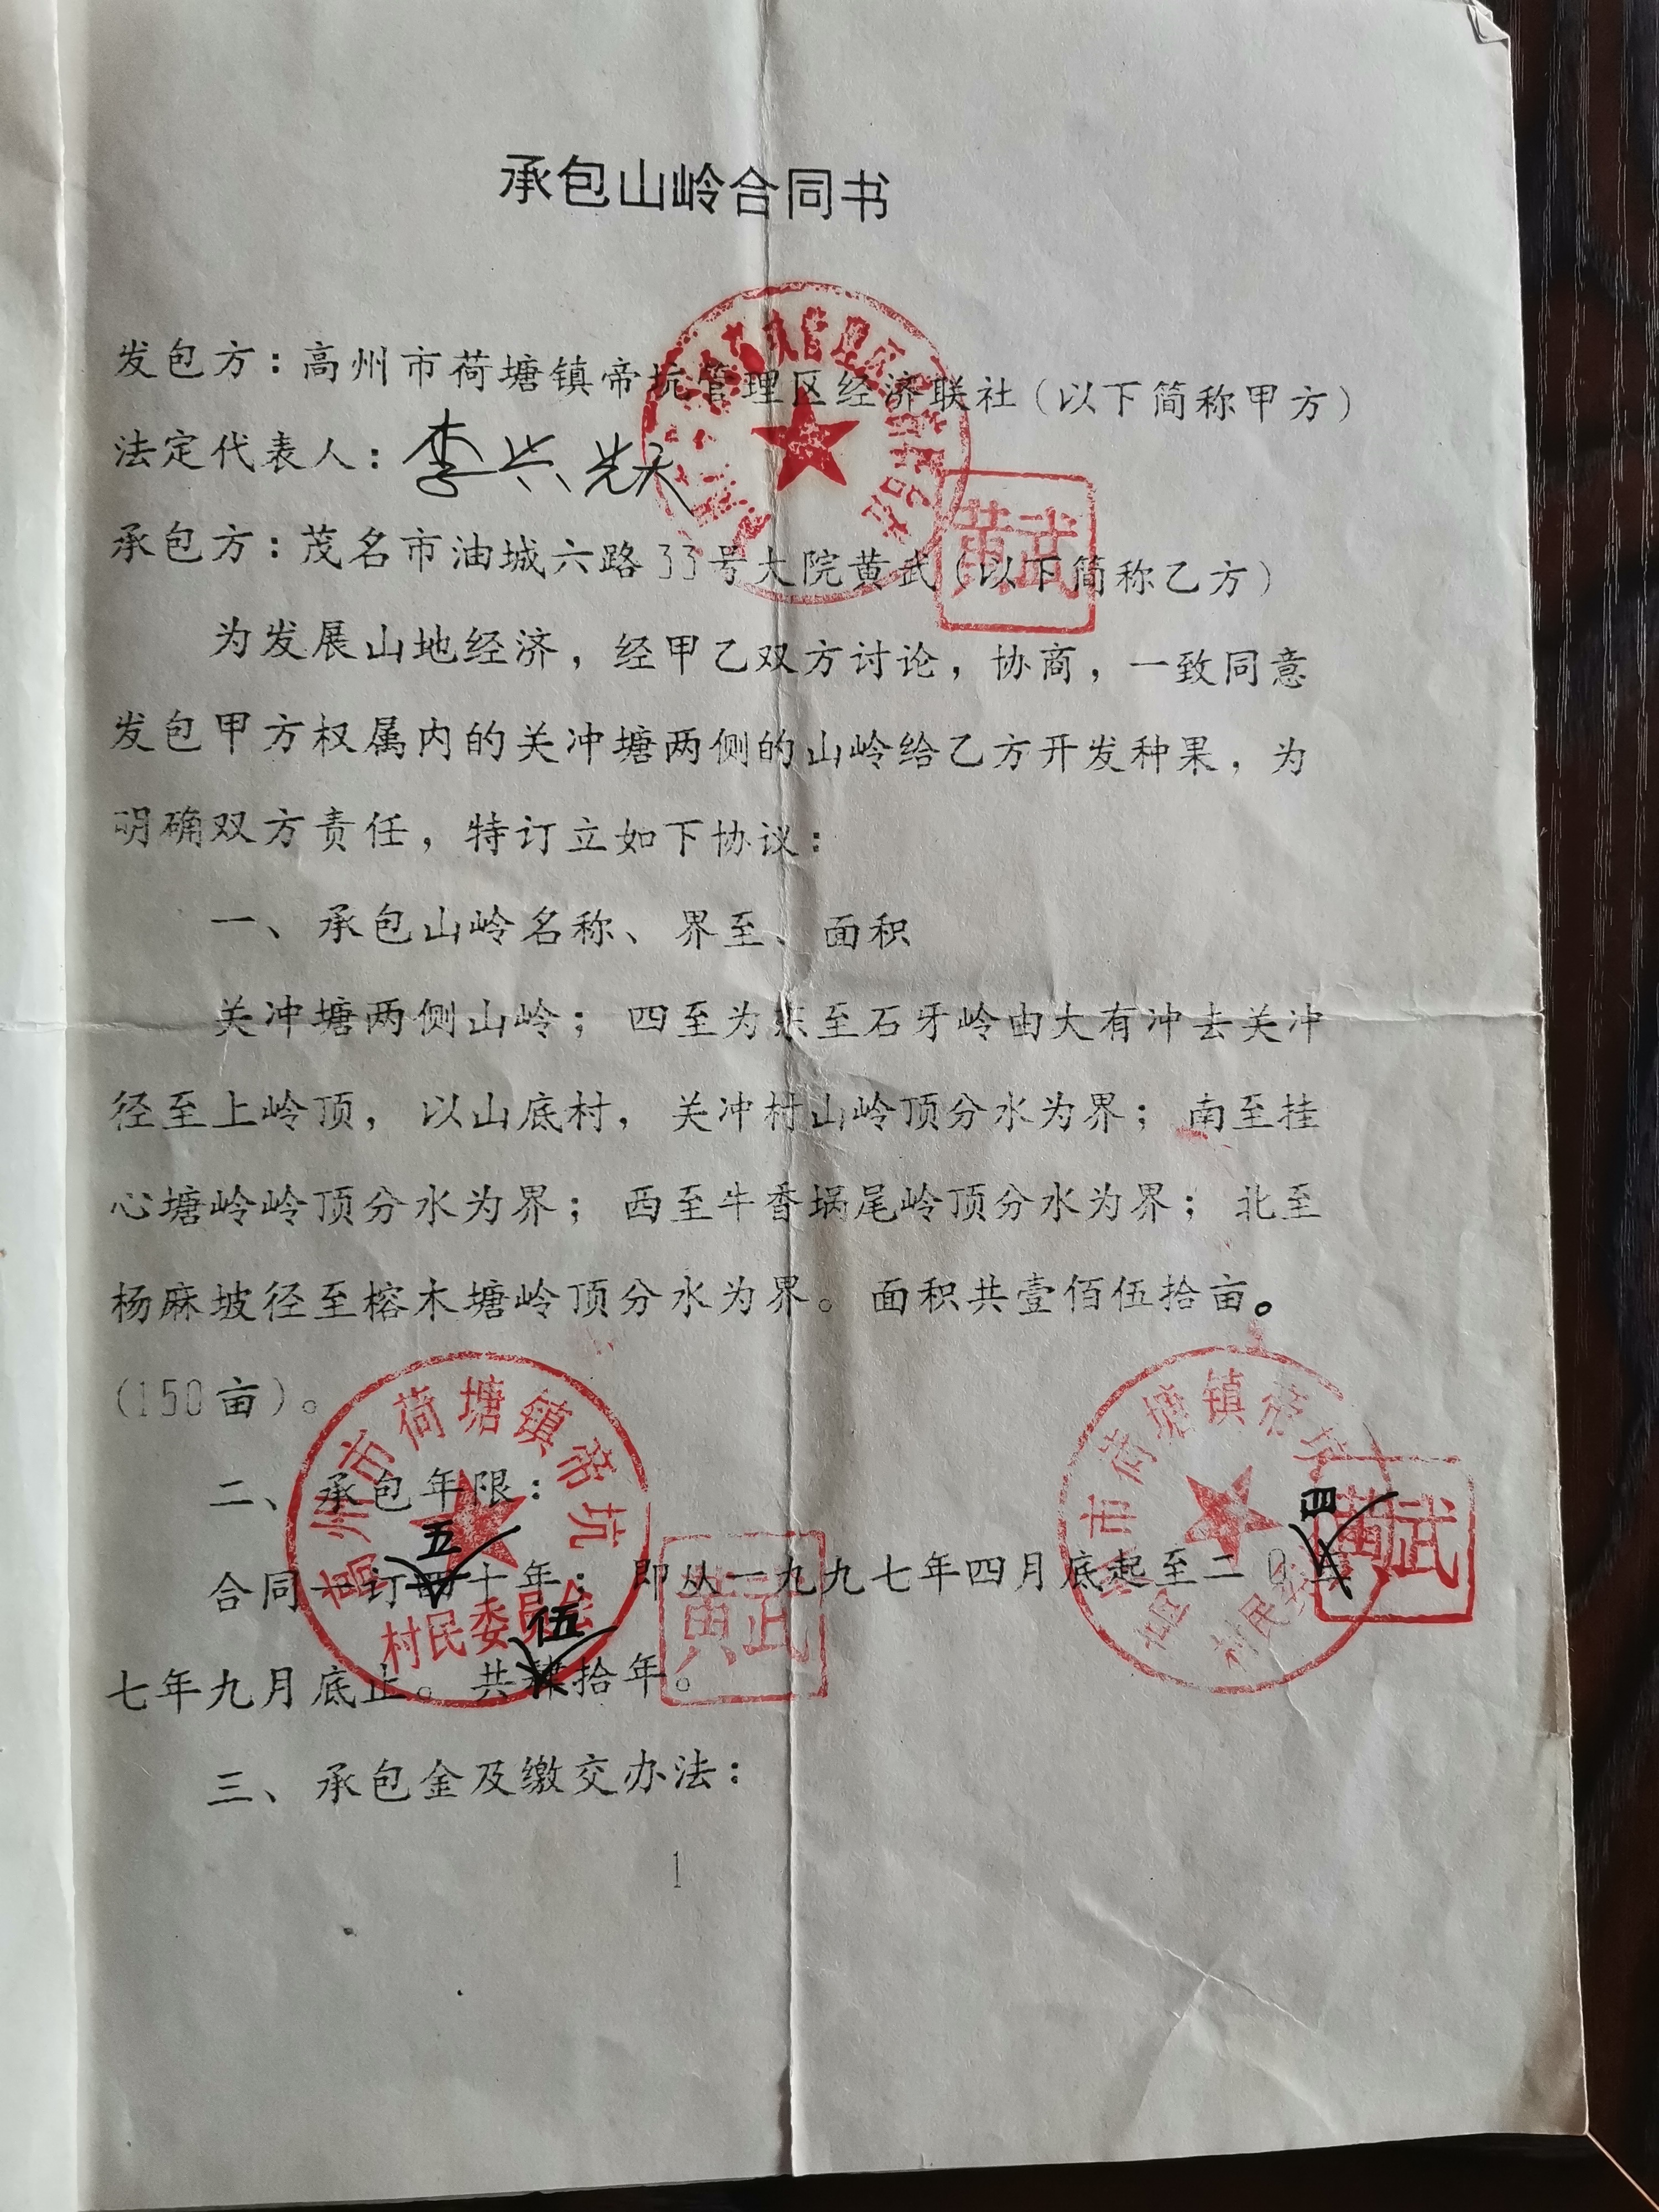 承包山岭合同书
发包方：高州市荷塘镇帝坑管理区经济联社（以下简称甲方）
法定代表人：李兴
承包方：茂名市油城六路33号大院黄武（以下简称乙方）
黄武
为发展山地经济，经甲乙双方讨论，协商，一致同意
发包甲方权属内的关冲塘两侧的山岭给乙方开发种果，为
明确双方责任，特订立如下协议：
一、承包山岭名称、界至、面积
关冲塘两侧山岭；四至为东至石牙岭由大有冲去关冲
径至上岭顶，以山底村，关冲村山岭顶分水为界；南至挂
心塘岭岭顶分水为界；西至牛香埚尾岭顶分水为界；北至
杨麻坡径至榕木塘岭顶分水为界。面积共壹佰伍拾亩。
（150亩）。
高州市荷塘镇帝坑
村民委员会
市荷塘镇帝坑
二、承包年限：
五
四
合同一订四十年；即从一九九七年四月底起至二0三
黄武
黄武
伍
七年九月底止。共肆拾年。
三、承包金及缴交办法：
1